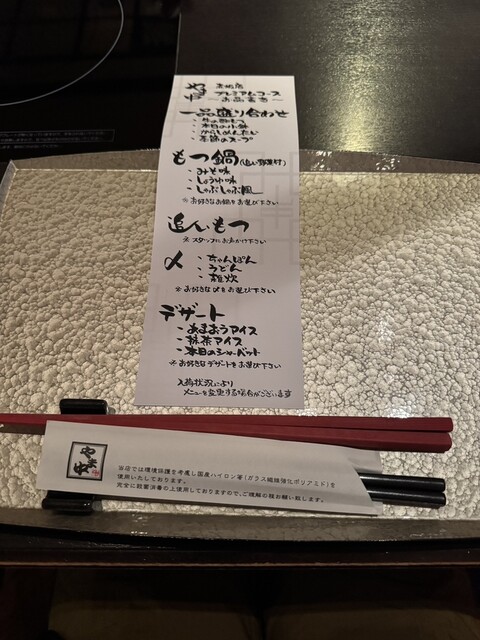 やま中
赤坂店
プレミアムコース
〜お品書き〜
一品盛り合わせ
・本日の小鉢
・からしめんたい
・季節のスープ
もつ鍋(追い野菜付)
・みそ味
・しょうゆ味
・しゃぶしゃぶ風
※お好きなお鍋をお選び下さい
追いもつ
※スタッフにお声かけ下さい
〆
・ちゃんぽん
・うどん
・雑炊
※お好きな〆をお選び下さい
デザート
・あまおうアイス
・抹茶アイス
・本日のシャーベット
※お好きなデザートをお選び下さい
入荷状況により
メニューを変更する場合がございます
やま中
当店では環境保護を考慮し国産ハイロン箸(ガラス繊維強化ポリアミド)を
使用いたしております。
完全に殺菌消毒の上使用しておりますので、ご理解の程お願い致します。